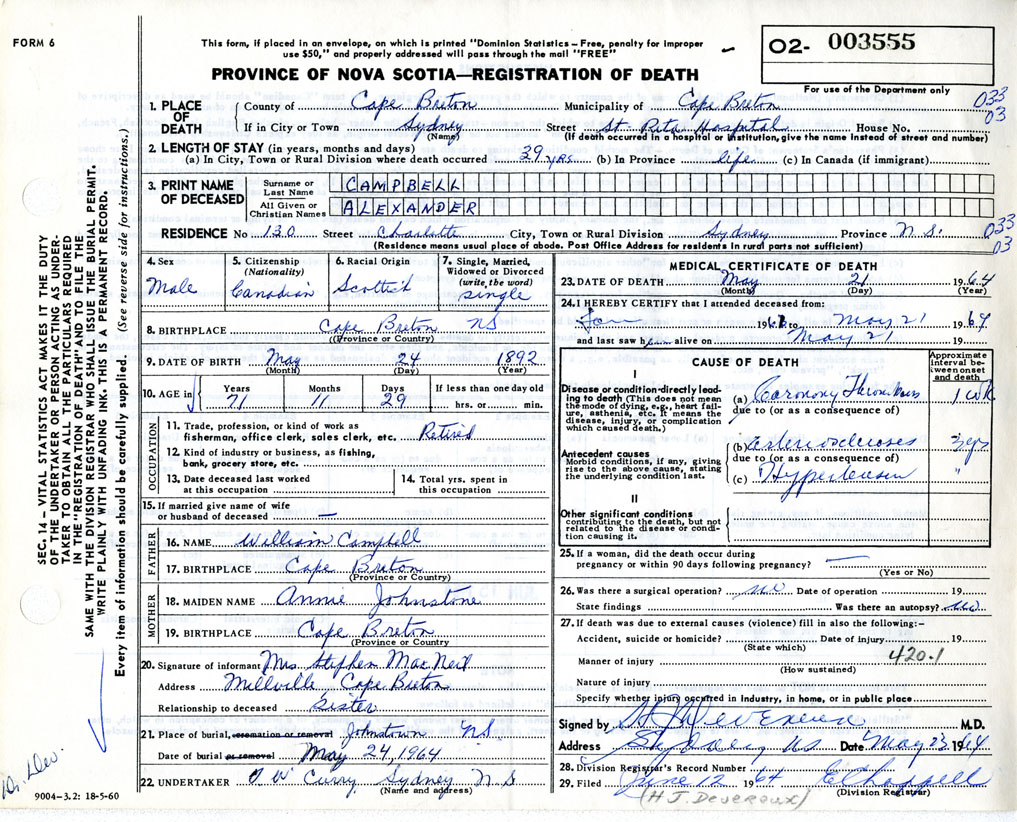 FORM 6
This form, if placed in an envelope, on which is printed "Dominion Statistics – Free, penalty for improper
use $50," and properly addressed will pass through the mail "FREE"
O2- 003555
PROVINCE OF NOVA SCOTIA—REGISTRATION OF DEATH
For use of the Department only
033
03
1. PLACE OF DEATH
County of Cape Breton Municipality of Cape Breton
If in City or Town Sydney Street St. Rita Hospital House No.
(Name) (If death occurred in a hospital or institution, give the name instead of street and number)
2. LENGTH OF STAY (in years, months and days)
(a) In City, Town or Rural Division where death occurred 39 yrs (b) In Province life (c) In Canada (if immigrant)
3. PRINT NAME OF DECEASED
Surname or Last Name CAMPBELL
All Given or Christian Names ALEXANDER
RESIDENCE No 130 Street Charlotte City, Town or Rural Division Sydney Province N.S.
033
03
(Residence means usual place of abode. Post Office Address for residents in rural parts not sufficient)
4. Sex
Male
5. Citizenship
(Nationality)
Canadian
6. Racial Origin
Scottish
7. Single, Married,
Widowed or Divorced
(write the word)
single
8. BIRTHPLACE Cape Breton NS
(Province or Country)
9. DATE OF BIRTH May 24 1892
(Month) (Day) (Year)
10. AGE in
Years Months Days If less than one day old
71 11 29 hrs. or min.
OCCUPATION
11. Trade, profession, or kind of work as
fisherman, office clerk, sales clerk, etc. Retired
12. Kind of industry or business, as fishing,
bank, grocery store, etc.
13. Date deceased last worked
at this occupation
14. Total yrs. spent in
this occupation
15. If married give name of wife
or husband of deceased —
FATHER
16. NAME William Campbell
17. BIRTHPLACE Cape Breton
(Province or Country)
MOTHER
18. MAIDEN NAME Annie Johnstone
19. BIRTHPLACE Cape Breton
(Province or Country)
20. Signature of informant Mrs Stephen MacNeil
Address Millville, Cape Breton
Relationship to deceased Sister
21. Place of burial, cremation or removal Johnstown NS
Date of burial or removal May 24, 1964
22. UNDERTAKER Curry Sydney N S
(Name and address)
9004-3.2: 18-5-60
MEDICAL CERTIFICATE OF DEATH
23. DATE OF DEATH May 21 1964
(Month) (Day) (Year)
24. I HEREBY CERTIFY that I attended deceased from:
Jan 196 to May 21 1964
and last saw him alive on May 21
CAUSE OF DEATH
Approximate
interval be-
tween onset
and death
I
Disease or condition directly lead-
ing to death (This does not mean
the mode of dying, e.g., heart fail-
ure, asthenia, etc. It means the
disease, injury, or complication
which caused death.)
(a) Coronary Thrombosis 1 wk
due to (or as a consequence of)
Antecedent causes
Morbid conditions, if any, giving
rise to the above cause, stating
the underlying condition last.
(b) Arteriosclerosis 3 yrs
due to (or as a consequence of)
(c) Hypertension "
II
Other significant conditions
contributing to the death, but not
related to the disease or condi-
tion causing it.
25. If a woman, did the death occur during
pregnancy or within 90 days following pregnancy? —
(Yes or No)
26. Was there a surgical operation? no Date of operation 19
State findings Was there an autopsy? no
27. If death was due to external causes (violence) fill in also the following:–
Accident, suicide or homicide? Date of injury 19
(State which)
420.1
Manner of injury
(How sustained)
Nature of injury
Specify whether injury occurred in industry, in home, or in public place
Signed by H J Devereux M.D.
Address Sydney NS Date May 23 1964
28. Division Registrar's Record Number
29. Filed June 12 1964 E Chappell
(Division Registrar)
(H J. Devereux)
SEC. 14 – VITAL STATISTICS ACT MAKES IT THE DUTY
OF THE UNDERTAKER OR PERSON ACTING AS UNDER-
TAKER TO OBTAIN ALL THE PARTICULARS REQUIRED
IN THE "REGISTRATION OF DEATH" AND TO FILE THE
SAME WITH THE DIVISION REGISTRAR WHO SHALL ISSUE THE BURIAL PERMIT.
WRITE PLAINLY WITH UNFADING INK. THIS IS A PERMANENT RECORD.
Every item of information should be carefully supplied. (See reverse side for instructions.)
Dr. Dev.